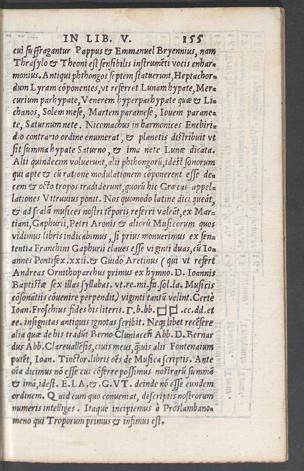 IN LIB. V. 155
cui suffragantur Pappus & Emmanuel Bryennius, nam
Thrasylo & Theoni est sensibilis instrumēti vocis enhar-
monius. Antiqui phthongos septem statuerunt, Heptachor-
dum Lyram cōponentes, vt referret Lunam hypate, Mer-
curium parhypate, Venerem hyperparhypate quæ & Li-
chanos, Solem mese, Martem paramese, Iouem parane-
te, Saturnum nete. Nicomachus in harmonices Enchiri-
dio contrario ordine enumerat, & planetis distribuit vt
sit summa hypate Saturno, & ima nete Lunæ dicata.
Alii quindecim voluerunt, alii phthongorū, idest sonorum
qui apte & cū ratione modulationem cōponerent esse de-
cem & octo tropos tradiderunt, quorū hic Græcas appel-
lationes Vitruuius ponit. Nos quomodo latine dici queāt,
& ad scalā musices nostri tēporis referri valeāt, ex Mar-
tiani, Gaphurii, Petri Aronis & aliorū Musicorum quos
vidimus libris indicabimus, si prius monuerimus ex sen-
tentia Franchini Gaphurii claues esse viginti duas, cū Io-
annes Pontifex .xxii. & Guido Aretinus (qui vt refert
Andreas Ornithoparchus primus ex hymno D. Ioannis
Baptistæ sex illas syllabas. vt.re.mi.fa.sol.la. Musicis
cōsonātiis cōuenire perpendit) viginti tantū velint. Certè
Ioan. Froschius fides his literis .Γ.b.bb. .cc.dd.et
ee. insignitas antiquis ignotas scribit. Neq; libet recēsere
alia quæ de his tradūt Berno Cluniacen̄ Abb. D. Bernar
dus Abb. Clareuallēsis, ciuis meus, q̄uis alii Fontenaium
putēt, Ioan. Tinctor. libris oēs de Musica scriptis. Ante
oīa dicimus nō esse cur cōferre possimus nostrarū summā
& imā, idest. E.LA. & .G.VT. deinde nō esse eundem
ordinem. Quid cum quo conueniat, descriptis nostrorum
numeris intelliges. Itaque incipiemus à Proslambano-
meno qui Troporum primus & infimus est.